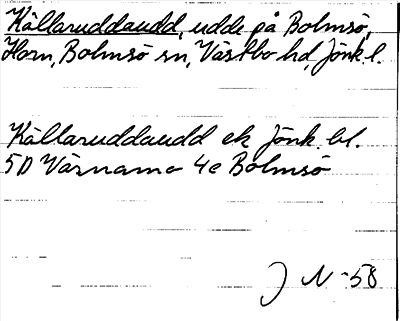 Källaruddaudd, udde på Bolmsö,
Horn, Bolmsö sn, Västbo hd, Jönk. l.
Källaruddaudd ek Jönk. bl.
5D Värnamo 4e Bolmsö
J N-58